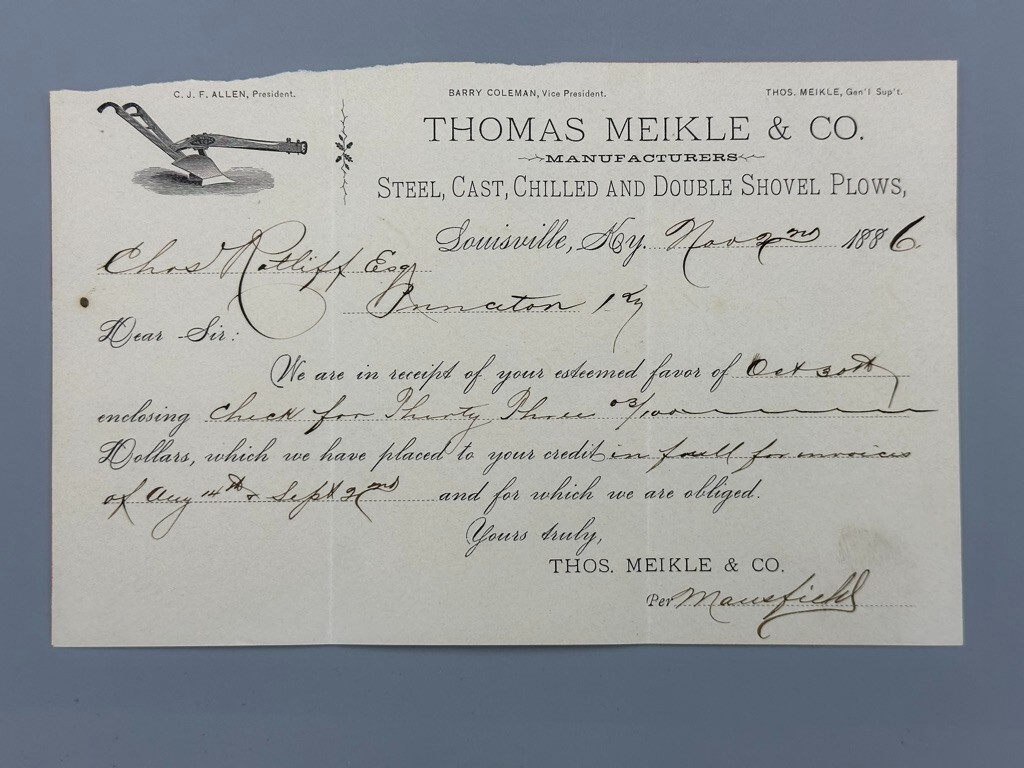 C. J. F. ALLEN, President. BARRY COLEMAN, Vice President. THOS. MEIKLE, Gen'l Sup't.
THOMAS MEIKLE & CO.
MANUFACTURERS
STEEL, CAST, CHILLED AND DOUBLE SHOVEL PLOWS,
Louisville, Ky. Nov 2nd 1886.
Chas Ratliff Esqr
Princeton Ky
Dear Sir:
We are in receipt of your esteemed favor of Oct 30th
enclosing Check for Thirty Three 03/100
Dollars, which we have placed to your credit in full for invoices
of Aug 14th & Sept 2nd and for which we are obliged.
Yours truly,
THOS. MEIKLE & CO.
Per Mansfield